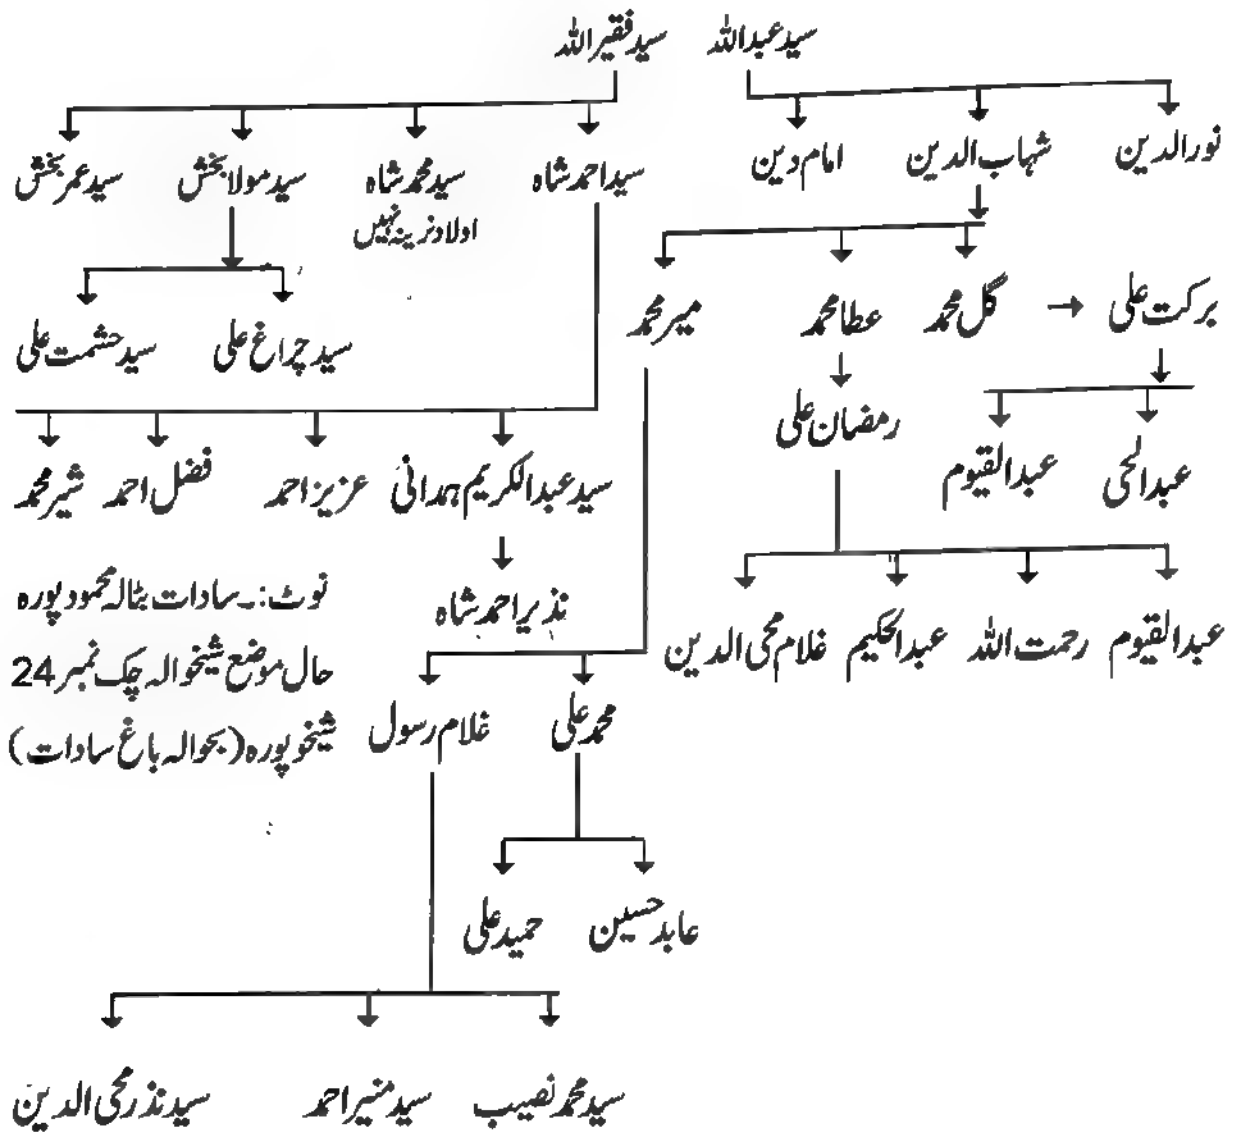 سید عبداللہ    سید فقیر اللہ
نور الدین    شہاب الدین    امام دین    سید احمد شاہ    سید محمد شاہ    سید مولا بخش    سید عمر بخش
اولاد نرینہ نہیں
برکت علی → گل محمد    عطا محمد    میر محمد    سید چراغ علی    سید حشمت علی
رمضان علی
عبدالحی    عبدالقیوم    سید عبدالکریم ہمدانی    عزیز احمد    فضل احمد    شیر محمد
عبدالقیوم    رحمت اللہ    عبدالحکیم    غلام محی الدین    نذیر احمد شاہ
نوٹ:۔ سادات بٹالہ محمود پورہ
حال موضع شیخوالہ چک نمبر 24
شیخوپورہ (بحوالہ باغ سادات)
محمد علی    غلام رسول
عابد حسین    حمید علی
سید محمد نصیب    سید منیر احمد    سید نذر محی الدین